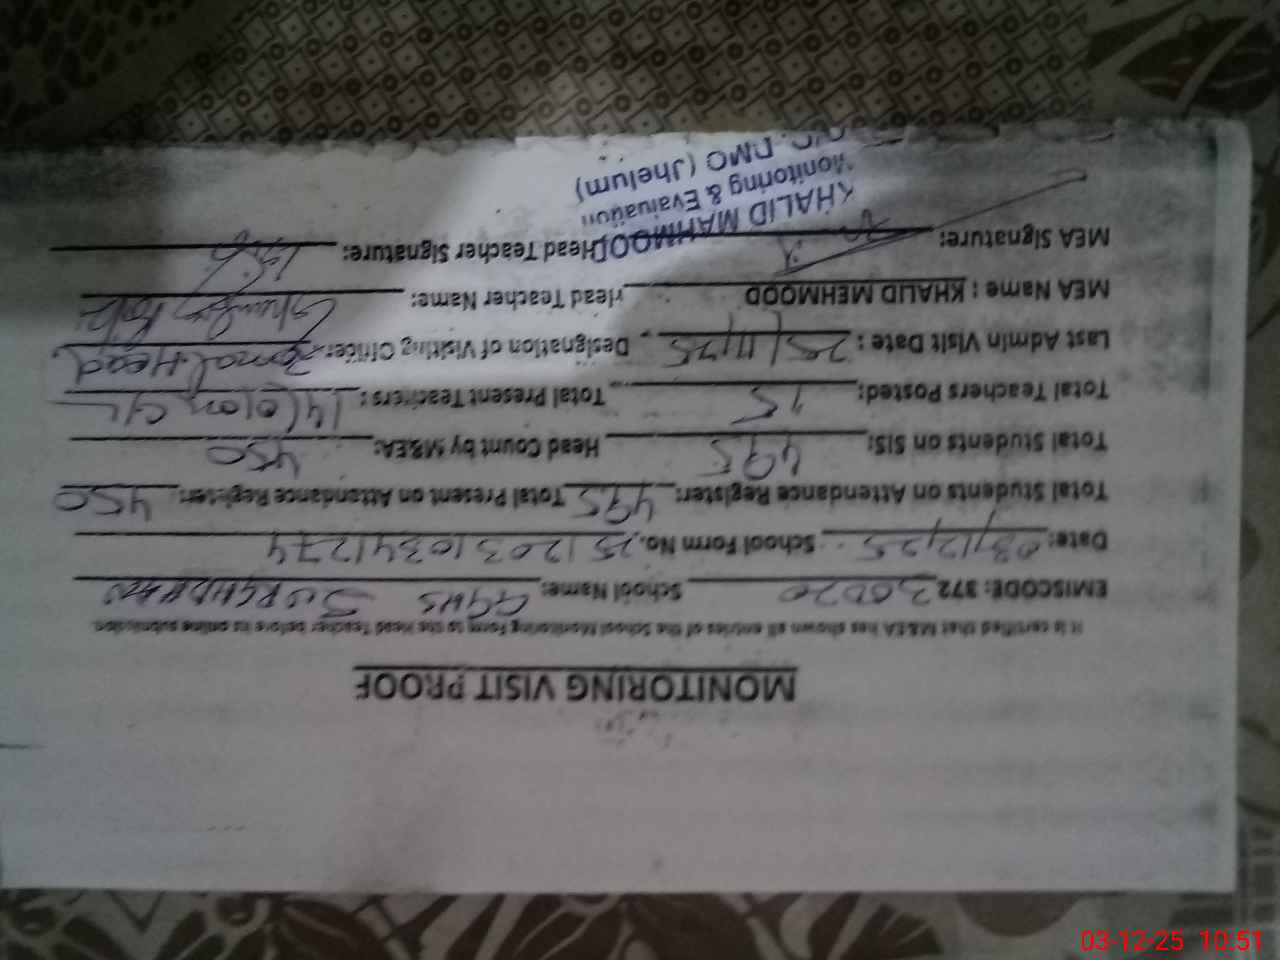 MONITORING VISIT PROOF
It is certified that M&EA has shown all entries of the School Monitoring Form to the Head Teacher before its online submission.
EMISCODE: 372 30020 School Name: GGHS
Date: 03/12/25 School Form No. 25120310341274
Total Students on Attendance Register: 495 Total Present on Attandance Register: 450
Total Students on SIS: 495 Head Count by M&EA: 450
Total Teachers Posted: 15 Total Present Teachers: 14 (01 on C/L
Last Admin Visit Date : 25/11/25 Designation of Visiting Officer: Head
MEA Name : KHALID MEHMOOD Head Teacher Name:
MEA Signature: Head Teacher Signature:
KHALID MAHMOOD
Monitoring & Evaluation
DMO (Jhelum)
03-12-25 10:51